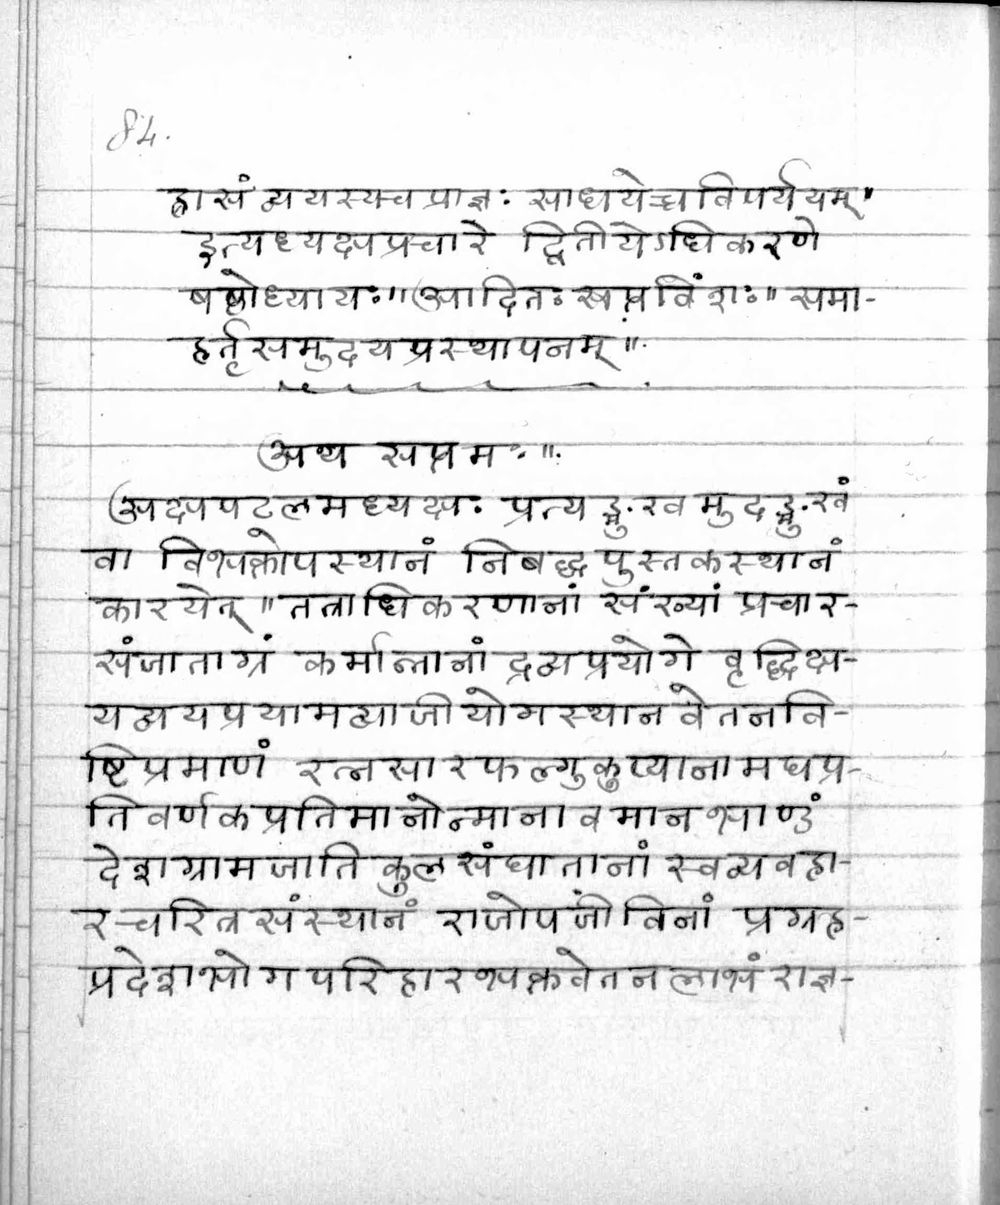 84.
ह्रासं व्ययस्य च प्राज्ञः साधयेच्च विपर्ययम्॥
इत्यध्यक्षप्रचारे द्वितीयेऽधिकरणे
षष्ठोध्यायः॥ आदितः सप्तविंशः॥ समा-
हर्तृसमुदयप्रस्थापनम्॥
अथ सप्तमः॥
अक्षपटलमध्यक्षः प्रत्यङ्मुखमुदङ्मुखं
वा विभक्तोपस्थानं निबद्धपुस्तकस्थानं
कारयेत्॥ तत्राधिकरणानां संख्यां प्रचार-
संजाताग्रं कर्मान्तानां द्रव्यप्रयोगे वृद्धिक्ष-
यव्ययप्रयामव्याजीयोगस्थानवेतनवि-
ष्टिप्रमाणं रत्नसारफल्गुकुप्यानामघप्र-
तिवर्णकप्रतिमानोन्मानावमानभाण्डं
देशग्रामजातिकुलसंघातानां स्वव्यवहा-
रचरित्रसंस्थानं राजोपजीविनां प्रग्रह-
प्रदेशभोगपरिहारभक्तवेतनलाभं राज्ञ-